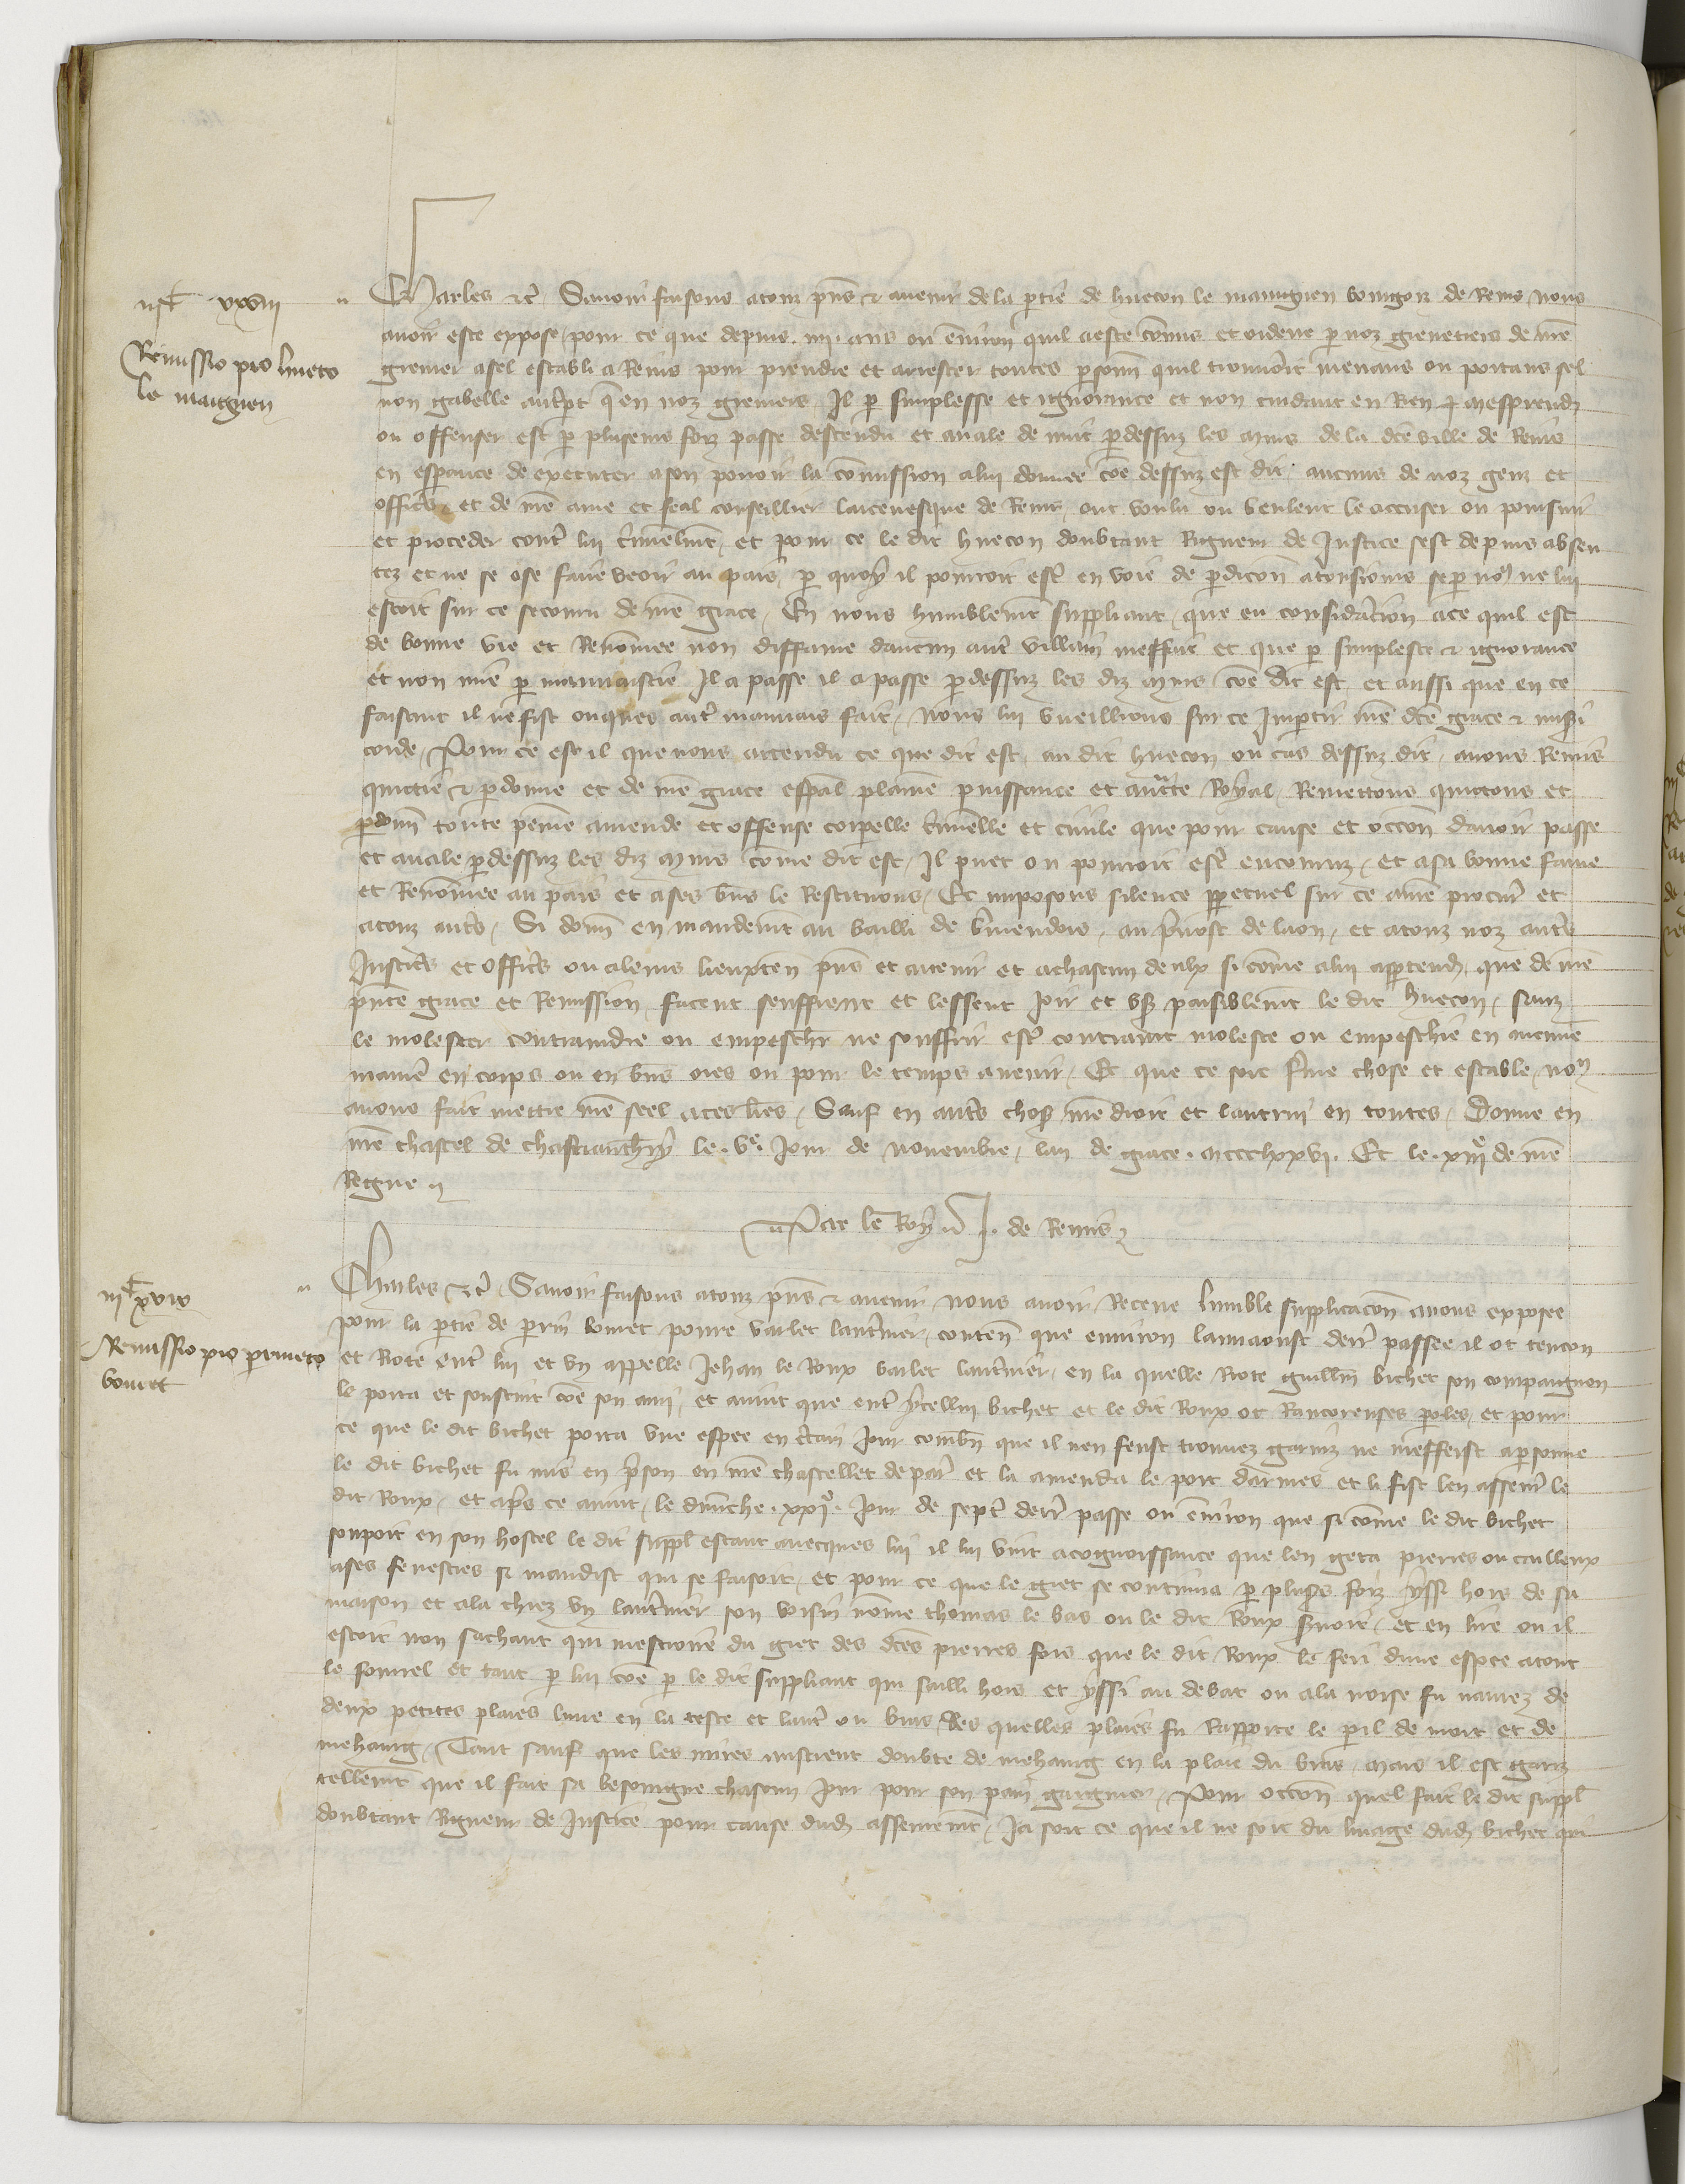 iiᶜ xxviii
Remissio pro hueto
le maugnien
Charles etc̄ Sauoir faisons a touz p̄ns & auenir de la ꝑtie de huecon le maugnien bourgois de Reins nous
auoir este expose / pour ce que depuis .iiii. ans ou enuiron quil a este cōmis et ordene ꝑ noz grenetiers de nr̄e
grenier a sel establi a Reins pour prendre et arrester toutes ꝑsonn̄ quil trouuer̄oit menans ou portans sel
non gabelle autr̄ꝑt q̄ en noz greniers / Il ꝑ simplesse et ignorance et non cuidant en Rien mesprendr̄
ou offenser est ꝑ pluseurs foiz passe descendu et auale de nuit ꝑdessuz les murs de la dc̄e ville de Reins
en esꝑance de executer a son pouoir la cōmission a lui donnee cōe dessuz est dit / aucuns de noz genz et
officr̄s et de nr̄e ame et feal conseillier larceuesque de Reins / ont voulu ou veulent le accuser ou poursuir
et proceder contr̄ lui cr̄iminelmt̄ / et pour ce le dit huecon doubtant Rigueur de Justice sest depuis absen
tez et ne se ose faire veoir au pais / ꝑ quoy il pourroit estr̄ en voie de ꝑdicōn a tousiours se ꝑ noꝰ ne lui
estoit sur ce secouru de nr̄e grace / En nous humblemt̄ suppliant / que en considāracion a ce quil est
de bonne vie et Renōmee non diffame daucun autr̄ villain meffait et que ꝑ simplesce & ignorance
et non mie ꝑ mauuaistie Il a passe il a passe ꝑdessuz les diz murs cōe dit est / et aussi que en ce
faisant il ne fist onques autr̄ mauuais fait / Nous lui vueillions sur ce Impartir nr̄e dc̄e grace & mis̄i
corde / Pour ce est il que nous attendu ce que dit est / au dit huecon ou cas dessuz dit / auons Remis
quictie & ꝑdonne et de nr̄e grace esp̄al plaine puissance et auct̄te Royal / Remettons quictons et
ꝑdonn̄ toute peine amende et offense corporelle cr̄iminelle et ciuile que pour cause et occōn dauoir passe
et auale ꝑdessuz les diz murs cōme dit est / Il puet ou pourroit estr̄ encouruz / et a sa bonne fame
et Renōmee au pais et a ses bn̄s le Restituons / Et imposons silence ꝑpetuel sur ce a nr̄e procur̄ et
a touz autr̄s / Si donn̄ en mandemt̄ au bailli de v̄mendois / au p̄uost de laon / et a touz noz autr̄s
Justicr̄s et officr̄s ou a leurs lieuxten̄ p̄ns et auenir et a chascun deulx si cōme a lui apꝑtendr̄ / que de nr̄e
p̄nte grace et Remission / facent seuffrent et lessent Joir et us̄ paisiblemt̄ le dit huecon / sanz
le molester contraindre ou empeschr̄ ne souffrir estr̄ contraint moleste ou empeschie en aucune
manier̄ en corps ou en bn̄s ores ou pour le temps auenir / Et que ce soit ferme chose et estable / noꝰ
auons fait mettre nr̄e seel a ces lr̄es / Sauf en autr̄s chos̄ nr̄e droit et lautrui en toutes / Donne en
nr̄e chastel de chastiauthierry le .vᵉ. Jour de nouembre / lan de grace .mccclxxvi. Et le .xiiiᵉ de nr̄e
Regne
Par le Roy J. de Reins
iiᶜ xxix
Remissio pro perineto
bouret
Charles etc̄ / Sauoir faisons a touz p̄ns & auenir / Nous auoir Receue lumble supplicacōn a nous exposee
pour la ꝑtie de perrin bouret poure varlet lantr̄nier / conten̄ que enuiron lami aoust derr̄ passee il ot tencon
et Riote entr̄ lui et vn appelle Jehan le Roux varlet lantr̄nier / en la quelle Riote guillm̄ bichet son compaignon
le porta et soustint cōe son ami / et auint que entr̄ ycellui bichet et le dit Roux ot Rancoreuses ꝑoles / et pour
ce que le dit bichet porta vne espee en cr̄tain Jour combn̄ que il nen feust trouuez garniz ne meffeist a ꝑsonne
le dit bichet fu mis en p̄rison en nr̄e chastellet de par̄ et la amenda le port darmes et li fist len asseur̄ le
dit Roux / et apr̄s ce auint / le dimenche .xxiᵉ. Jour de sept̄ derr̄ passe ou enuiron que si cōme le dit bichet
soupoit en son hostel le dit suppl̄ estant auecques lui il lui vint a cognoissance que len geta pierres ou cailleux
a ses fenestres si mandist qui se faisoit / et pour ce que le giet se continua ꝑ plus̄s foiz yssi hors de sa
maison et ala chiez vn lantr̄nier son voisin nōme thomas le bas ou le dit Roux ouuroit / et en lire ou il
estoit non sachant qui mestioire du giet des dc̄es pierres fors que le dit Roux le feri dune espee a tout
le fourrel et tant ꝑ lui cōe ꝑ le dit suppliant qui sailli hors et yssi au debat ou a la noise fu naurez de
deux petites plaies lune en la teste et lautr̄ ou bras / Des quelles plaies fu Rapporte le ꝑil de mort et de
mehaing / Tant sauf que les mires mistrent doubte de mehaing en la plaie du bras / mais il est gariz
tellemt̄ que il fait sa besoingne chascun jour pour son pain gaigner / Pour occōn quel fait le dit suppl̄
doubtant Rigueur de Justice pour cause dud̄ asseuremt̄ / Ja soit ce que il ne soit du linage dud̄ bichet qui